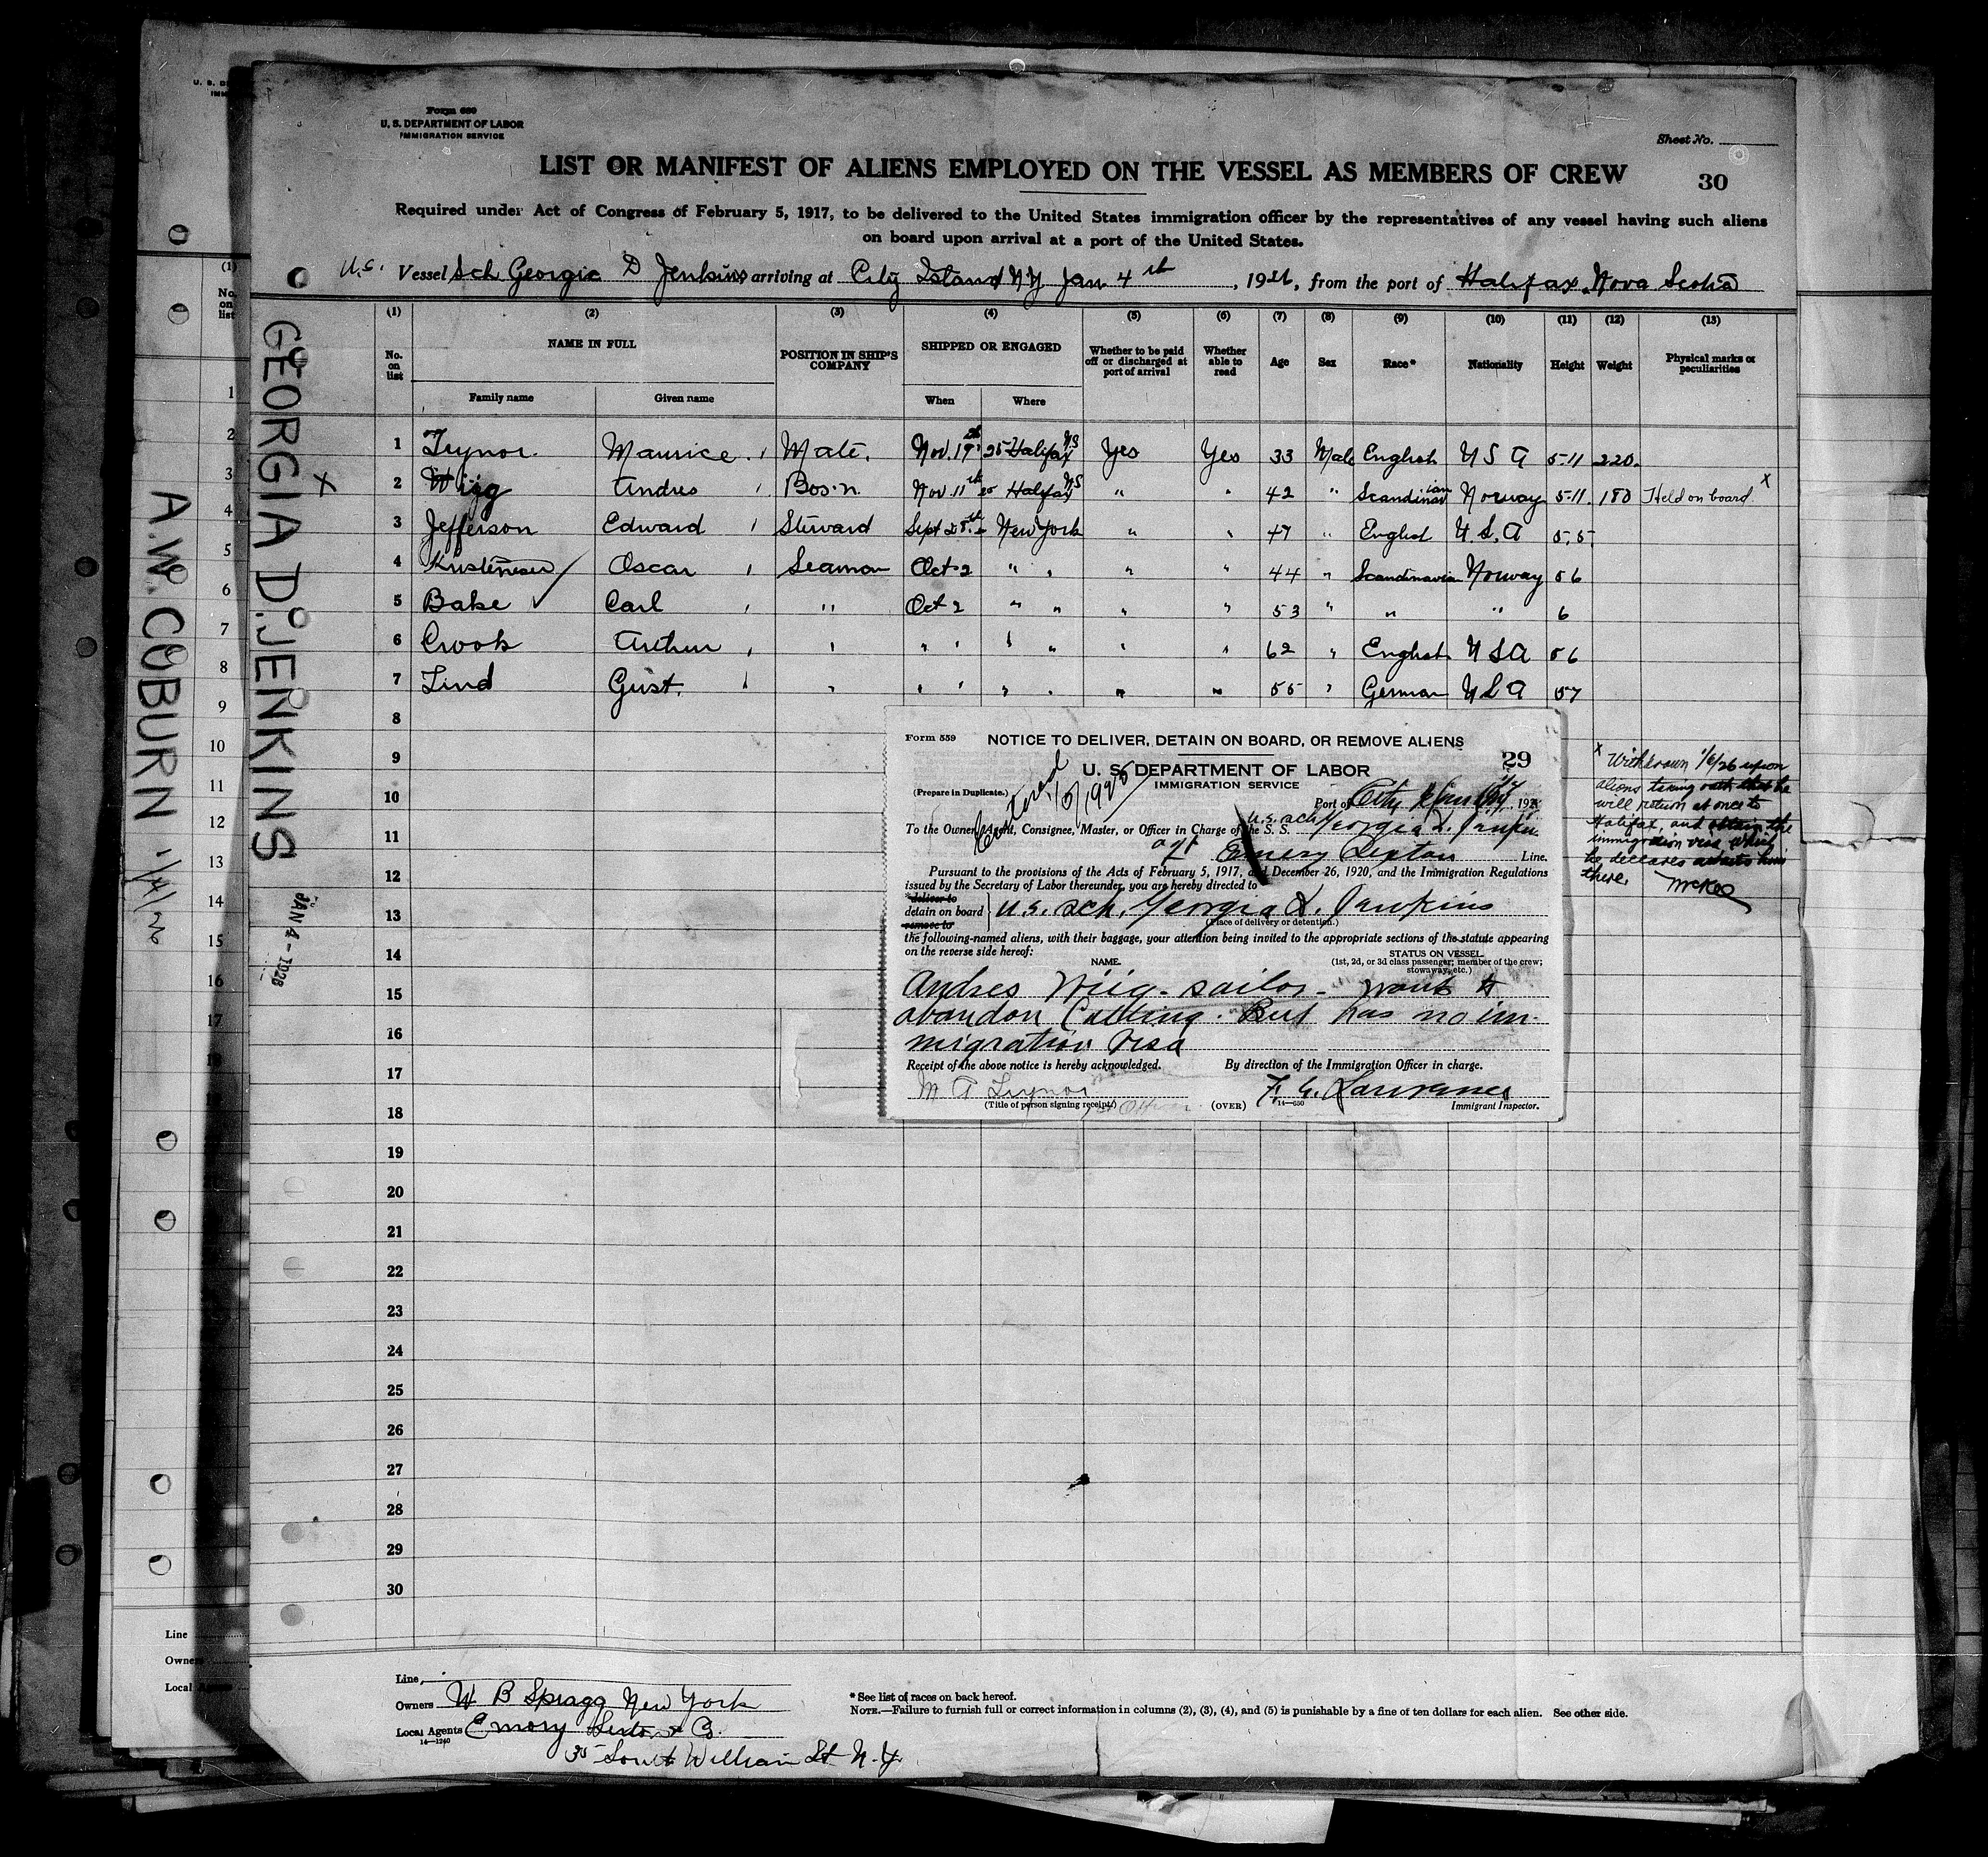 U. S. D
IMM
Form 689
U. S. DEPARTMENT OF LABOR
IMMIGRATION SERVICE
Sheet No.
LIST OR MANIFEST OF ALIENS EMPLOYED ON THE VESSEL AS MEMBERS OF CREW
30
Required under Act of Congress of February 5, 1917, to be delivered to the United States immigration officer by the representatives of any vessel having such aliens
on board upon arrival at a port of the United States.
U.S. Vessel Sch Georgia D Jenkins arriving at City Island NY Jan 4th, 1926, from the port of Halifax, Nova Scotia
(1) (2) (3) (4) (5) (6) (7) (8) (9) (10) (11) (12) (13)
No. on list NAME IN FULL POSITION IN SHIP'S COMPANY SHIPPED OR ENGAGED Whether to be paid off or discharged at port of arrival Whether able to read Age Sex Race* Nationality Height Weight Physical marks or peculiarities
Family name Given name When Where
1 Trynor Maurice Mate. Nov. 19th 25 Halifax NS Yes Yes 33 Male English U S A 5-11 220.
2 Wiig Andres Bos'n. Nov 11th 25 Halifax NS " " 42 " Scandinavian Norway 5-11. 180 Held on board. X
3 Jefferson Edward Steward Sept 28th New York " " 47 " English U.S.A 5-5-
4 Kristensen Oscar Seaman Oct 2 " " " " 44 " Scandinavian Norway 5 6
5 Bake Carl " Oct 2 " " " " 53 " " " 6
6 Crook Arthur " " " " " " " 62 " English U S A 5 6
7 Lind Gust. " " " " " " " 55 " German U S A 5 7
8
9
10
11
12
13
14
15
16
17
18
19
20
21
22
23
24
25
26
27
28
29
30
Form 559
NOTICE TO DELIVER, DETAIN ON BOARD, OR REMOVE ALIENS
29
U. S. DEPARTMENT OF LABOR
IMMIGRATION SERVICE
(Prepare in Duplicate.)
Port of City Island 192
To the Owner, Agent, Consignee, Master, or Officer in Charge of the S. S. U.S. sch Georgia D. Jenkins
agt Emery Sexton Line.
Pursuant to the provisions of the Acts of February 5, 1917, and December 26, 1920, and the Immigration Regulations
issued by the Secretary of Labor thereunder, you are hereby directed to
*deliver to
detain on board U.S. sch. Georgia D. Jenkins
remove to
(Place of delivery or detention.)
the following-named aliens, with their baggage, your attention being invited to the appropriate sections of the statute appearing
on the reverse side hereof:
NAME.
STATUS ON VESSEL.
(1st, 2d, or 3d class passenger; member of the crew;
stowaway, etc.)
Andres Wiig - sailor - want to
abandon Calling. But has no im-
migration Visa
Receipt of the above notice is hereby acknowledged.
By direction of the Immigration Officer in charge.
M A Trynor
(Title of person signing receipt.)
(OVER)
14—650
Immigrant Inspector.
X Withdrawn 1/6/26 upon
aliens taking oath that he
will return at once to
Halifax, and obtain the
immigration visa which
he declares awaits him
there. McKee
GEORGIA D. JENKINS
X
JAN 4 - 1926
A.W. COBURN
(1)
No. on list
1
2
3
4
5
6
7
8
9
10
11
12
13
14
15
16
17
Line
Owners
Local Agents
Line
Owners W B Spragg New York
Local Agents Emory Sexton & Co.
14—1240
35 South William St N.Y.
* See list of races on back hereof.
NOTE.—Failure to furnish full or correct information in columns (2), (3), (4), and (5) is punishable by a fine of ten dollars for each alien. See other side.